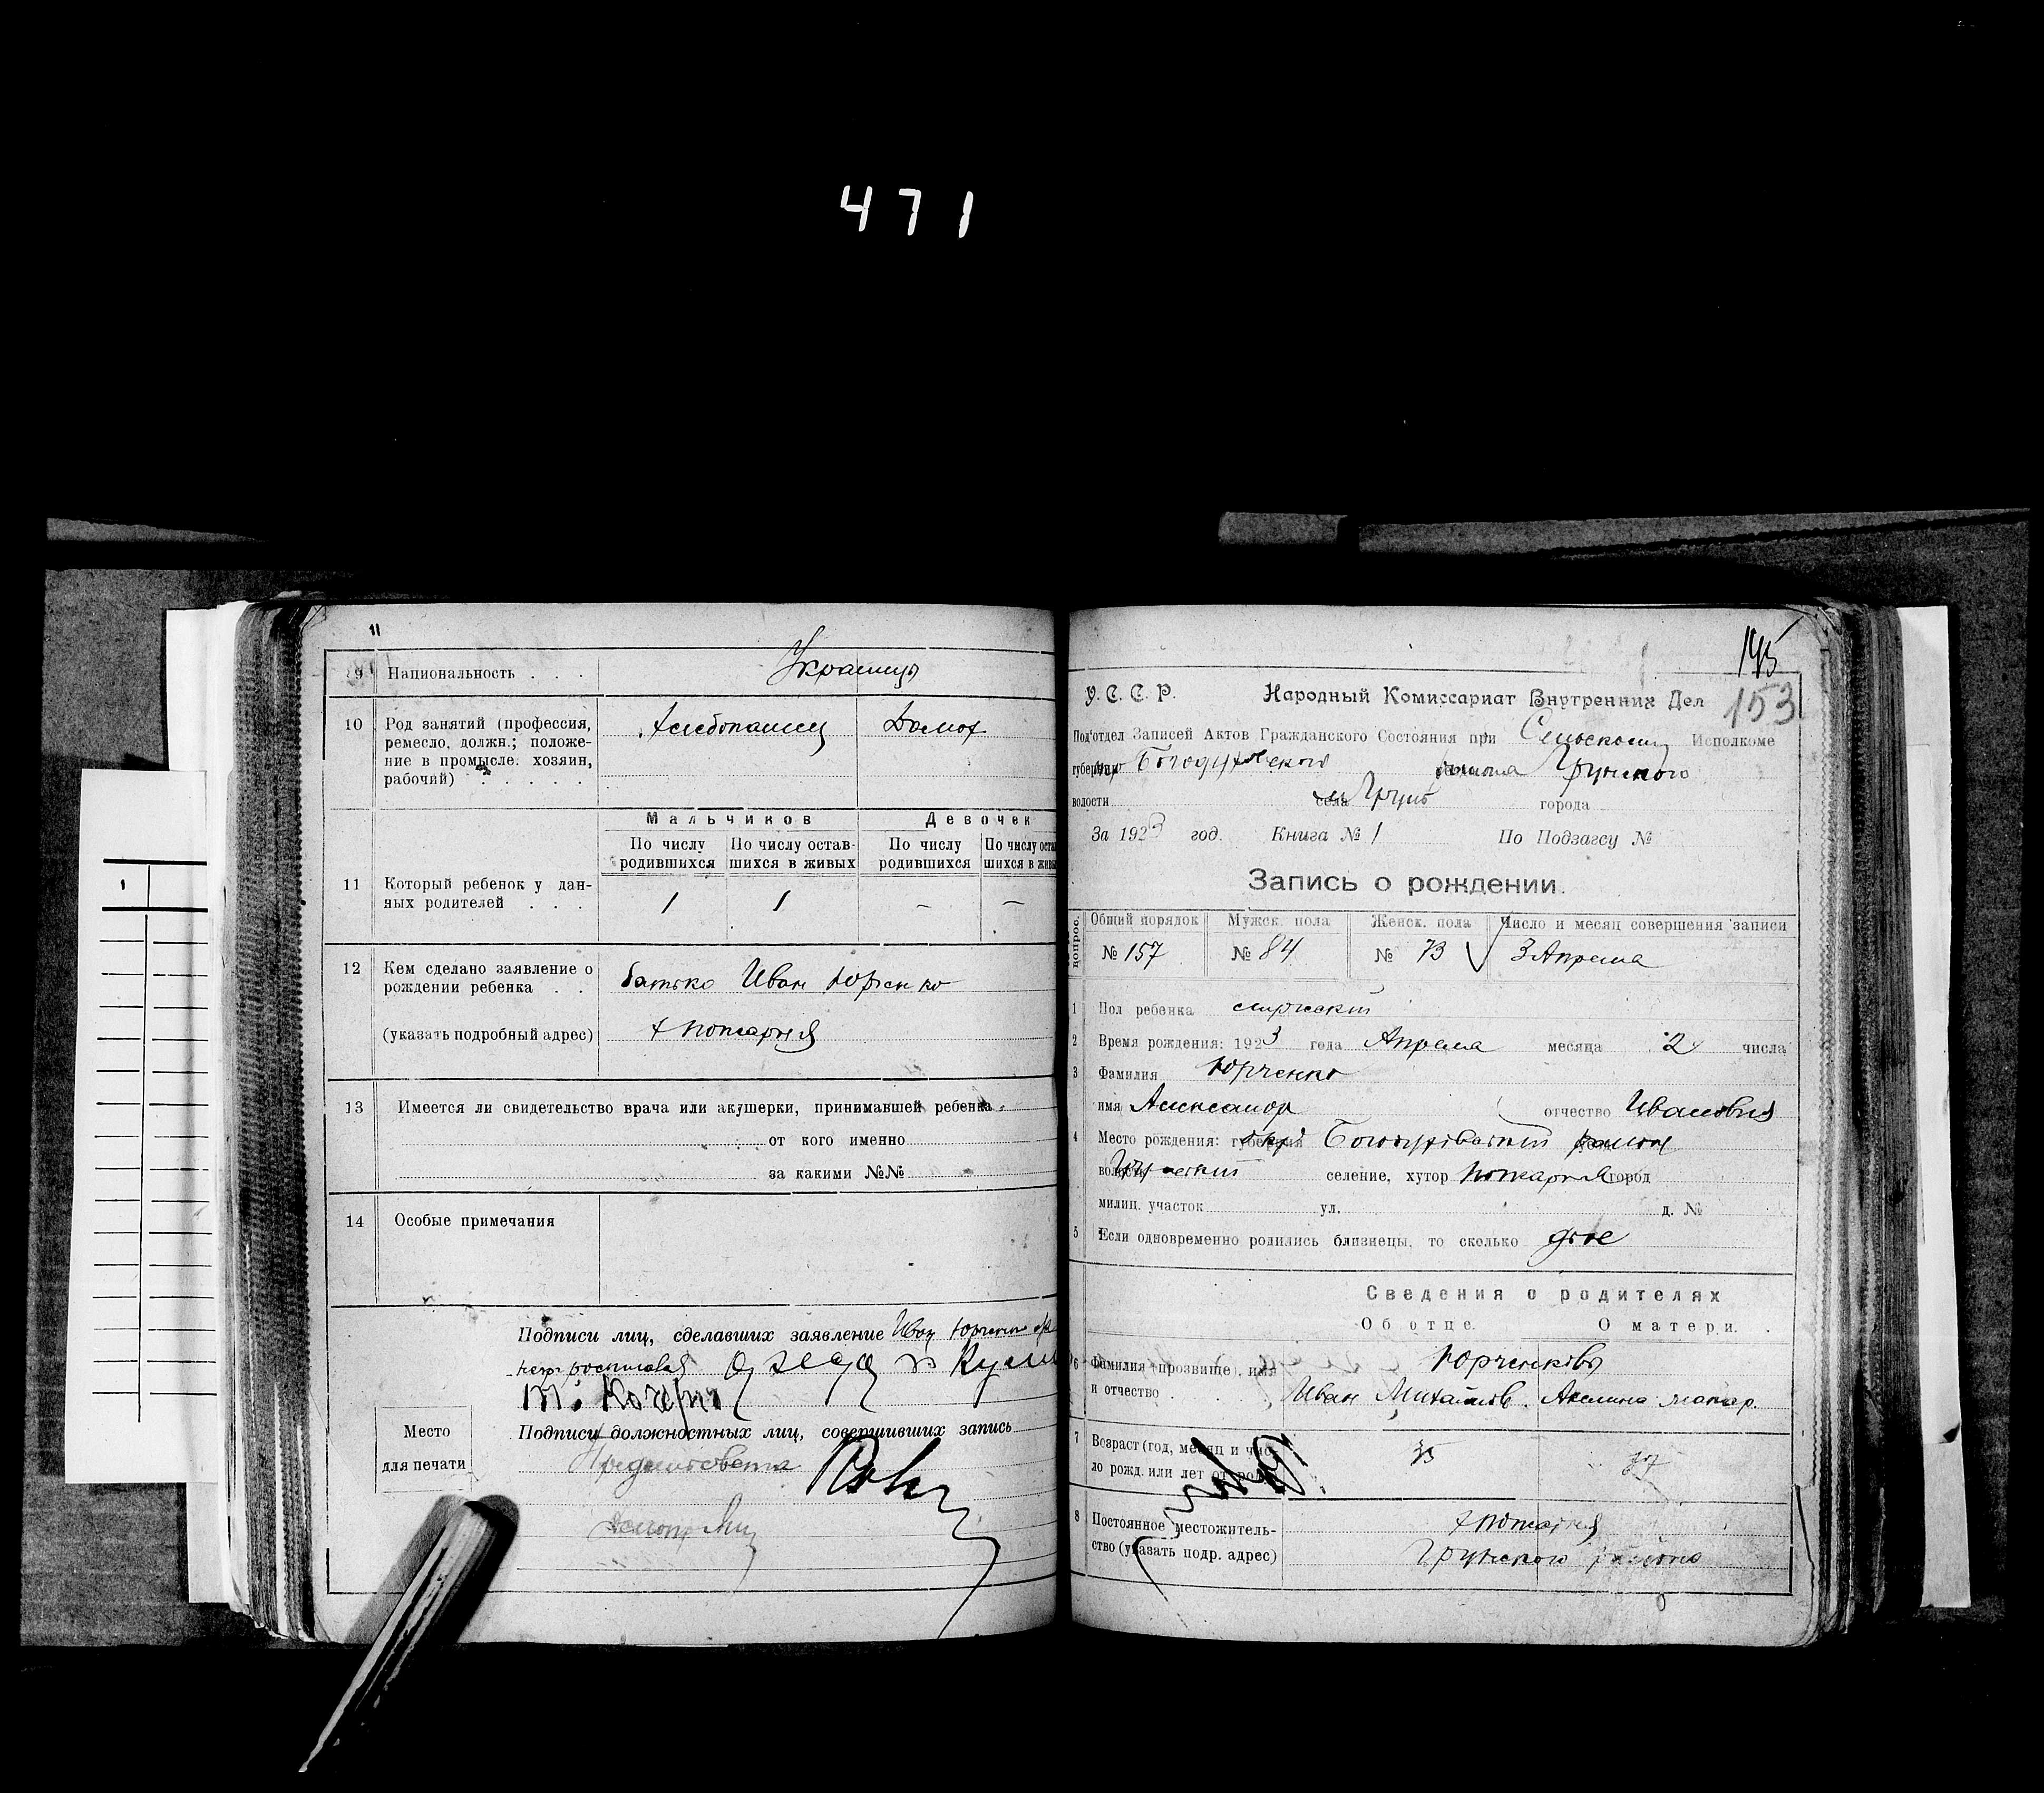 471
11
9 Национальность . . . Украинцы
10 Род занятий (профессия, ремесло, должн.; положение в промысле. хозяин, рабочий) . . . . .
Хлебопашец Домох
Мальчиков Девочек
По числу родившихся По числу оставшихся в живых По числу родившихся По числу оста
шихся в жив
11 Который ребенок у данных родителей . . .
1 1 – –
12 Кем сделано заявление о рождении ребенка . .
батько Иван Юрченко
(указать подробный адрес)
х Пожарня
13 Имеется ли свидетельство врача или акушерки, принимавшей ребенка
от кого именно
за какими №№
14 Особые примечания
Подписи лиц, сделавших заявление Иван Юрченко
Место для печати
Подписи должностных лиц, совершивших запись
145
153
У. С. С. Р. Народный Комиссариат Внутренних Дел
Под'отдел Записей Актов Гражданского Состояния при Сельском Исполкоме
губернии Богодуховского района Грунского
волости села Грунь города
За 1923 год. Книга № 1 По Подзагсу №
Запись о рождении.
вопрос. Общий порядок Мужск. пола Женск. пола Число и месяц совершения записи
№ 157 № 84 № 73 3 Апреля
1 Пол ребенка мужеский
2 Время рождения: 1923 года Апреля месяца 2 числа
3 Фамилия Юрченко
имя Александр отчество Иванович
4 Место рождения: губерния окр Богодуховский район
волость Грунский селение, хутор Пожарня город
милиц. участок ул. д. №
5 Если одновременно родились близнецы, то сколько двое
Сведения о родителях
Об отце. О матери.
6 Фамилия (прозвище), имя и отчество . .
Юрченковы
Иван Михайлов. Акелина макар.
7 Возраст (год, месяц и число рожд. или лет от роду)
35 37
8 Постоянное местожительство (указать подр. адрес)
х Пожарня
Грунского района